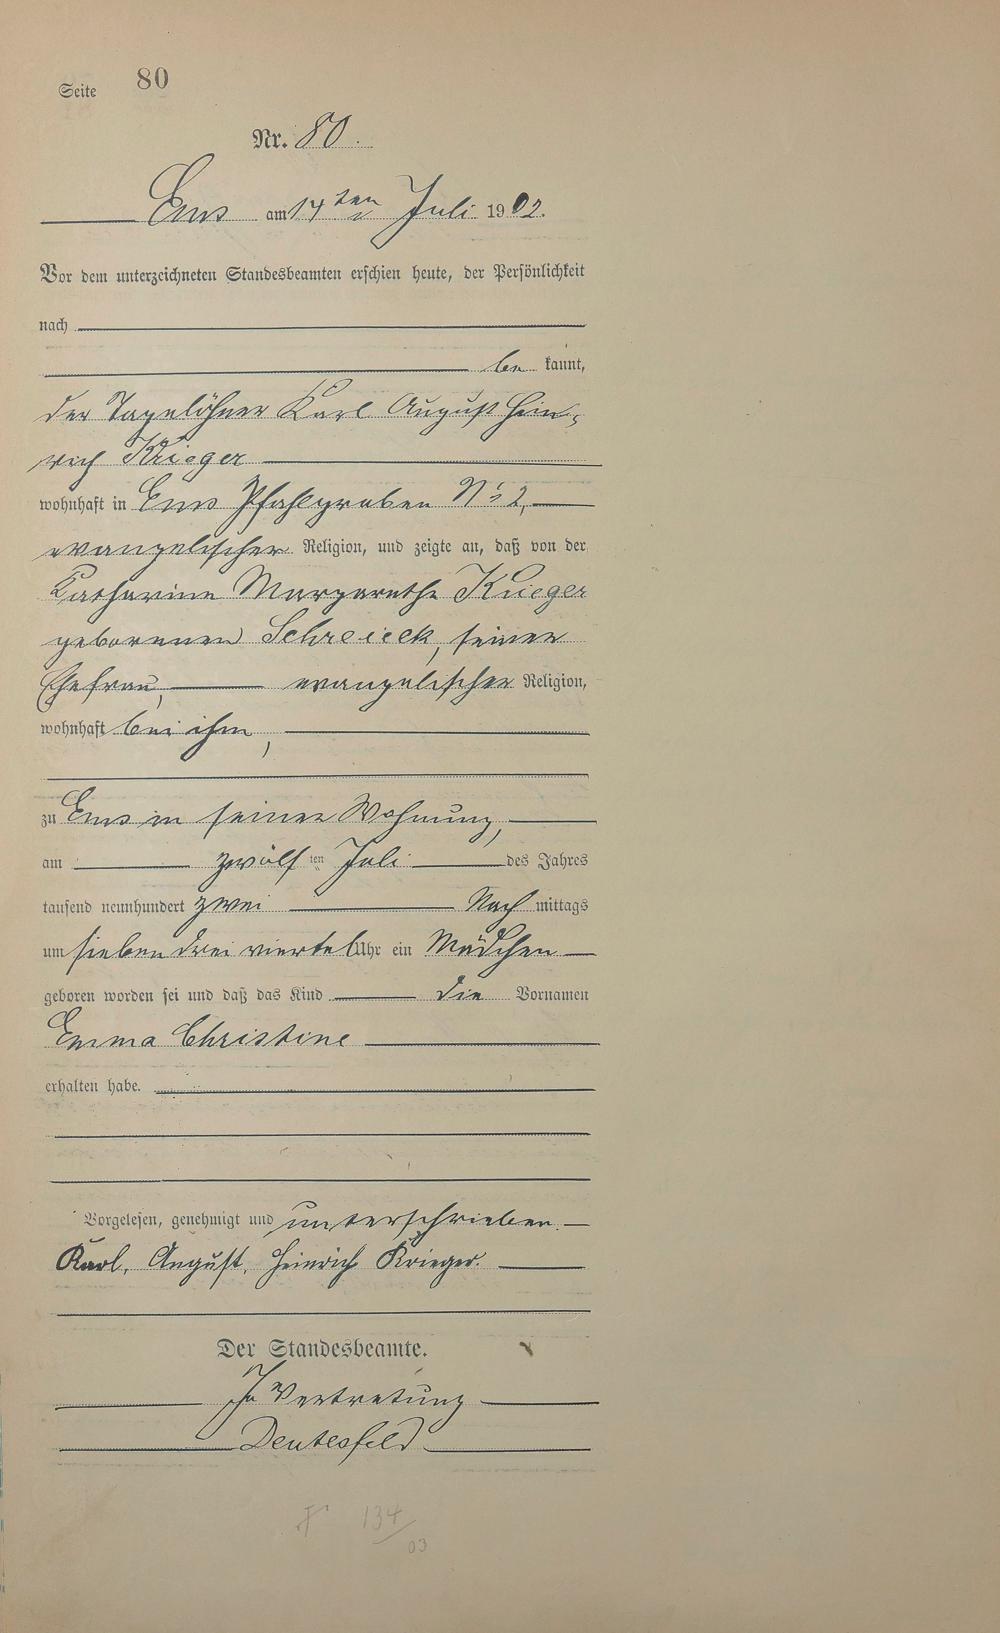 Seite 80
Nr. 80.
Ems am 14ten Juli 1902.
Vor dem unterzeichneten Standesbeamten erschien heute, der Persönlichkeit
nach
be kannt,
der Tagelöhner Karl August Hein-
rich Krieger
wohnhaft in Ems Pfahlgraben No 2,
evangelischer Religion, und zeigte an, daß von der
Katharina Margarethe Krieger
geborenen Schreieck, seiner
Ehefrau, evangelischer Religion,
wohnhaft bei ihm,
zu Ems in seiner Wohnung,
am zwölf ten Juli des Jahres
tausend neunhundert zwei Nach mittags
um sieben drei viertel Uhr ein Mädchen
geboren worden sei und daß das Kind die Vornamen
Emma Christine
erhalten habe.
Vorgelesen, genehmigt und unterschrieben.
Karl, August, Heinrich Krieger.
Der Standesbeamte.
In Vertretung
Deutesfeld
134/03